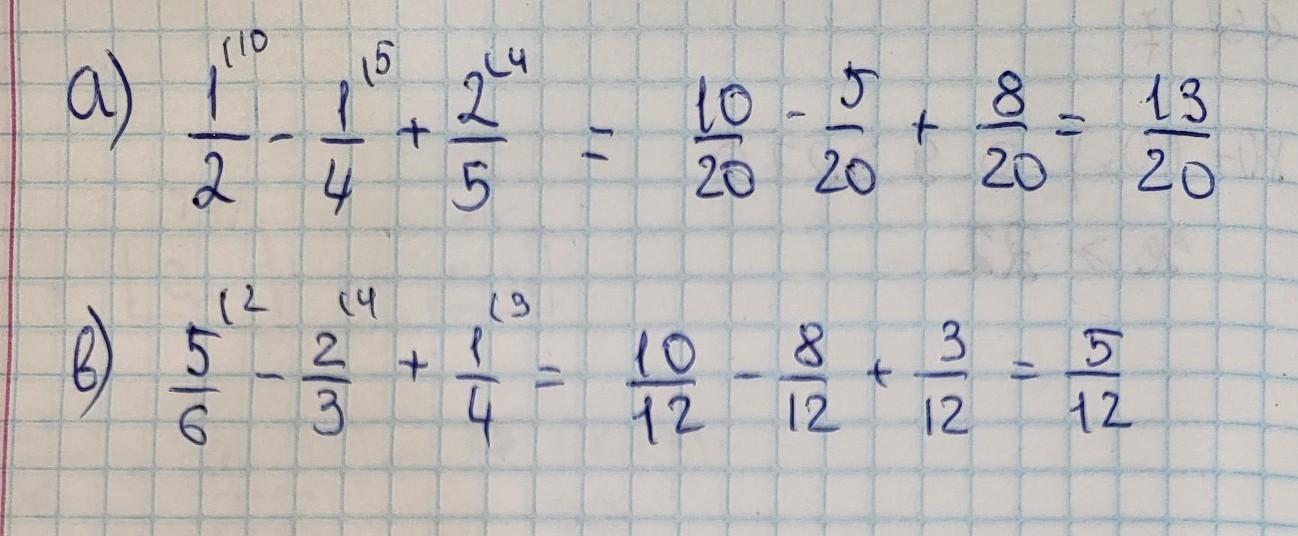 а) 1/2 (10 - 1/4 (5 + 2/5 (4 = 10/20 - 5/20 + 8/20 = 13/20
в) 5/6 (2 - 2/3 (4 + 1/4 (3 = 10/12 - 8/12 + 3/12 = 5/12